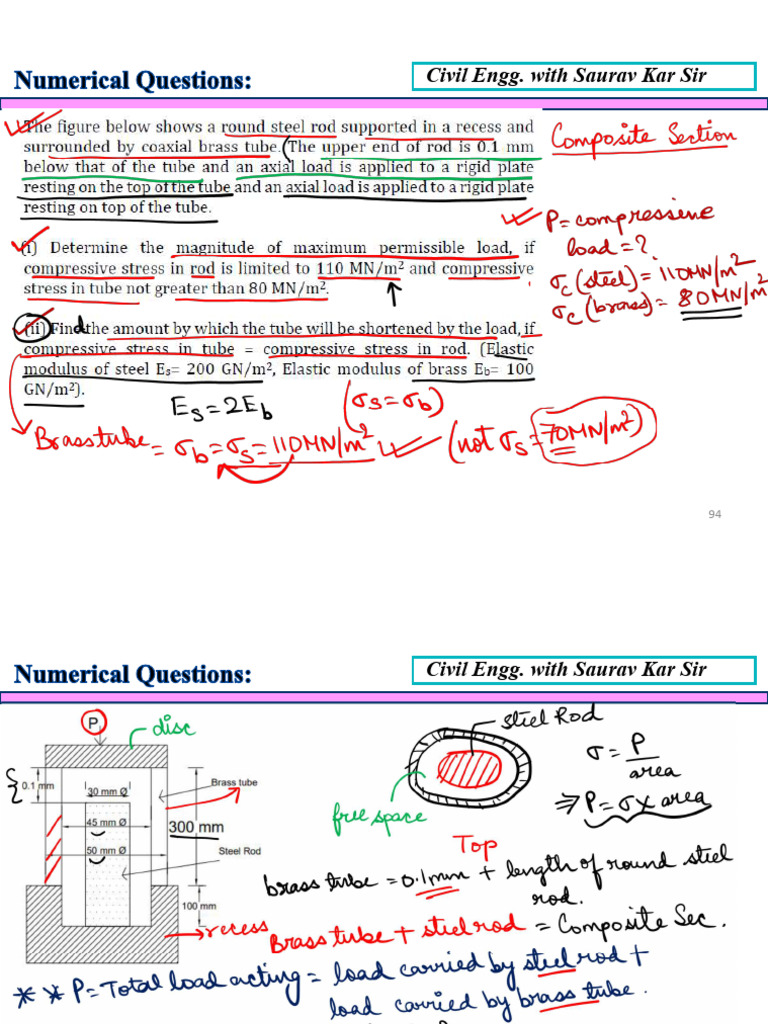 Numerical Questions:
Civil Engg. with Saurav Kar Sir
The figure below shows a round steel rod supported in a recess and
surrounded by coaxial brass tube. (The upper end of rod is 0.1 mm
below that of the tube and an axial load is applied to a rigid plate
resting on the top of the tube and an axial load is applied to a rigid plate
resting on top of the tube.
Composite Section
(i) Determine the magnitude of maximum permissible load, if
compressive stress in rod is limited to 110 MN/m² and compressive
stress in tube not greater than 80 MN/m².
P = compressive
load = ?
σc (steel) = 110MN/m²
σc (brass) = 80MN/m²
(ii) Find the amount by which the tube will be shortened by the load, if
compressive stress in tube = compressive stress in rod. (Elastic
modulus of steel Es= 200 GN/m², Elastic modulus of brass Eb= 100
GN/m²).
Es = 2Eb
(σs = σb)
Brass tube = σb = σs = 110MN/m²
(not σs = 70MN/m²)
94
Numerical Questions:
Civil Engg. with Saurav Kar Sir
P
disc
0.1 mm
30 mm Ø
Brass tube
45 mm Ø
300 mm
50 mm Ø
Steel Rod
100 mm
recess
steel Rod
free space
σ = P/area
⇒ P = σ x area
Top
brass tube = 0.1mm + length of round steel
rod.
Brass tube + steel rod = Composite Sec.
** P = Total load acting = load carried by steel rod +
load carried by brass tube.